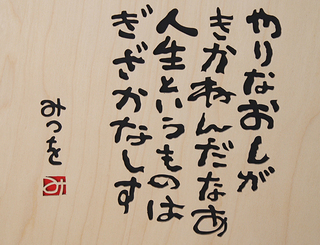 やりなおしが
きかねんだなあ
人生というものは
ぎざかなしす
みつを
み